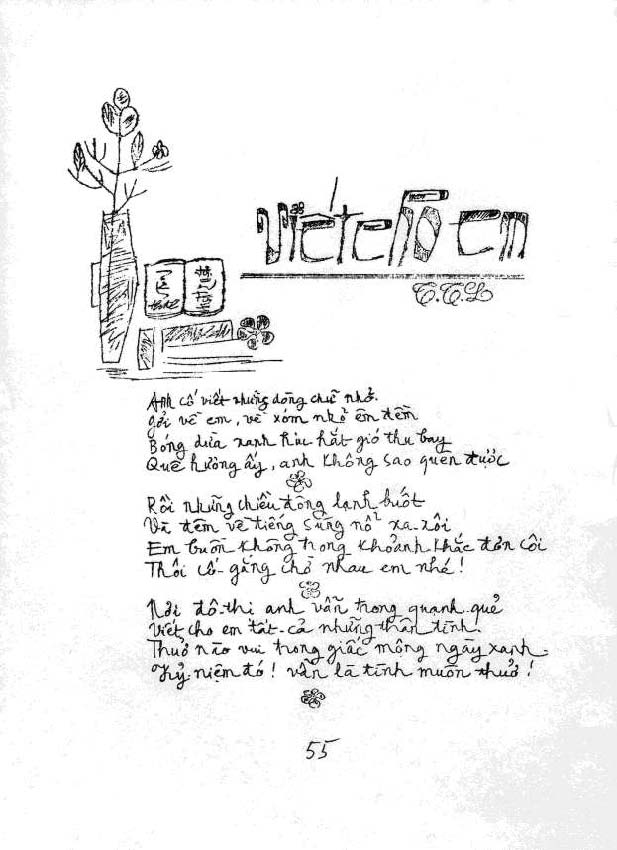 Viết cho em
T.T.L
Anh cố viết những dòng chữ nhỏ.
Gởi về em, về xóm nhỏ êm đềm
Bóng dừa xanh hiu hắt gió thu bay
Quê hương ấy, anh không sao quên được
Rồi những chiều đông lạnh buốt
Và đêm về tiếng súng nổ xa-xôi
Em buồn không trong khoảnh-khắc đơn côi
Thôi cố-gắng chờ nhau em nhé!
Nơi đô-thi anh vẫn trong quạnh-quẻ
Viết cho em tất-cả những thân tình.
Thuở nào vui trong giấc mộng ngày xanh.
Kỷ-niệm đó! vẫn là tình muôn thuở!
55